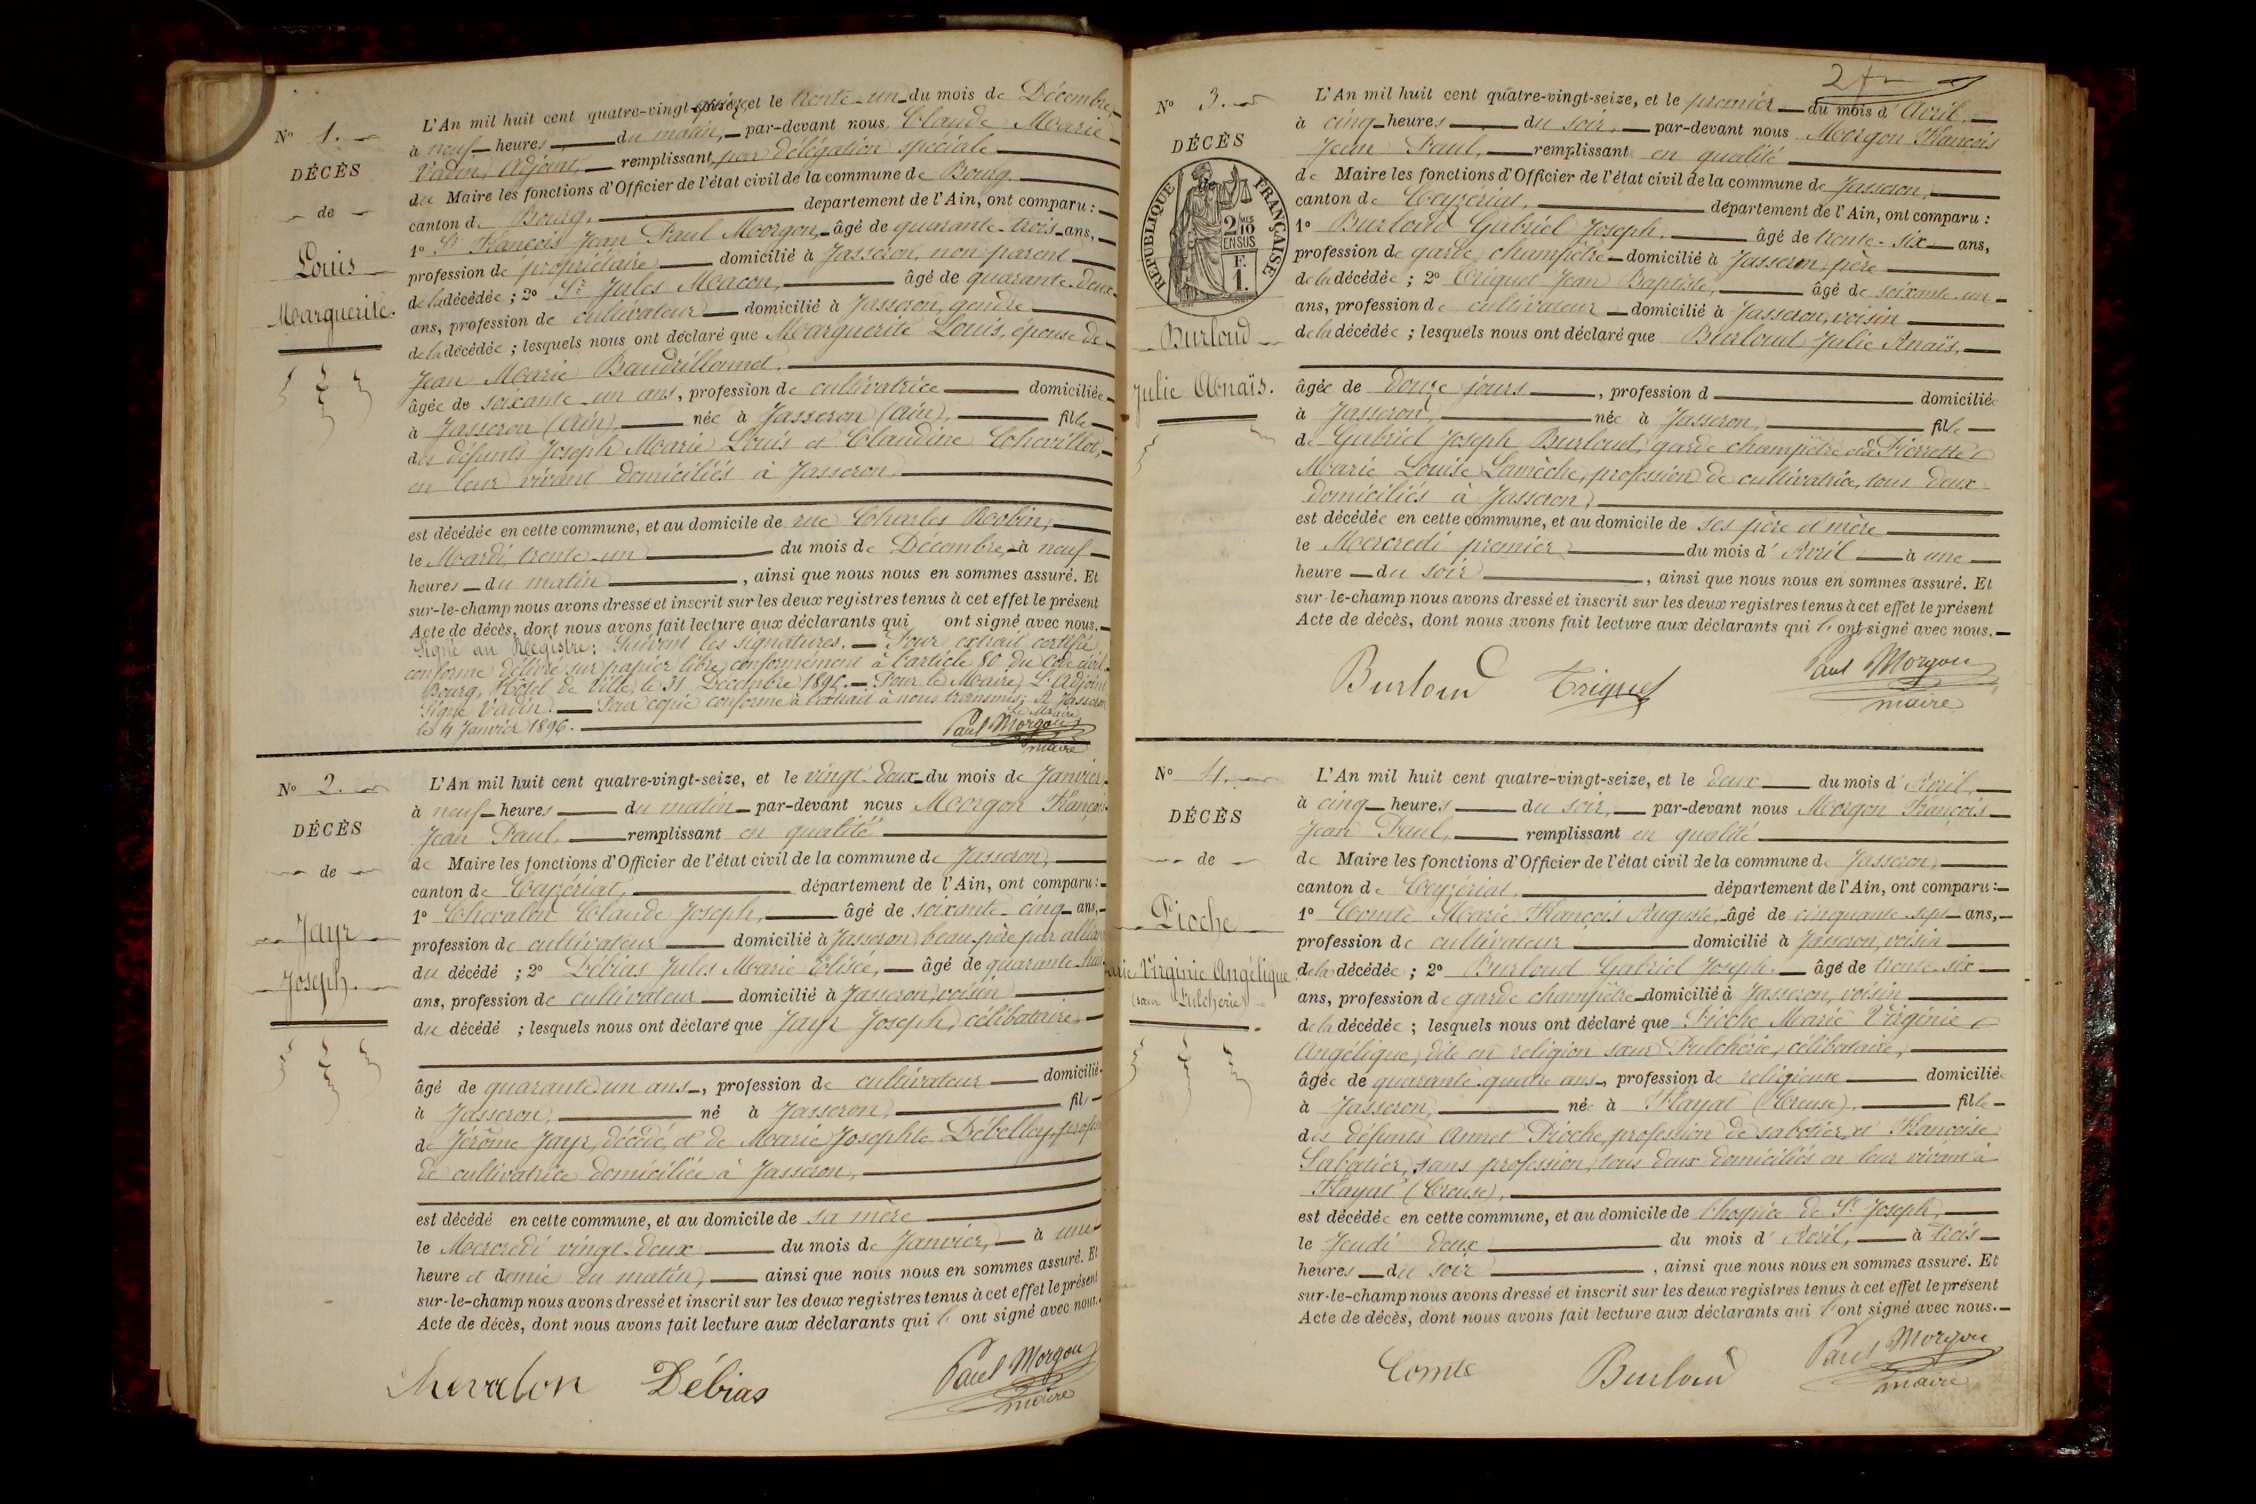 N° 1.
DÉCÈS
de
Louis
Marguerite.
L'An mil huit cent quatre-vingt-quinze, et le trente-un du mois de Décembre,
à neuf heures du matin, par-devant nous, Claude Marie
Vadin, Adjoint, remplissant par délégation spéciale
du Maire les fonctions d'Officier de l'état civil de la commune de Bourg,
canton de Bourg, département de l'Ain, ont comparu :
1° Sr François Jean Paul Morgon, âgé de quarante-trois ans,
profession de propriétaire domicilié à Jasseron, non parent
de la décédée ; 2° Sr Jules Macon, âgé de quarante-deux
ans, profession de cultivateur domicilié à Jasseron, gendre
de la décédée ; lesquels nous ont déclaré que Marguerite Louis, épouse de
Jean Marie Baudrillonnet,
âgée de soixante-un ans, profession de cultivatrice domiciliée
à Jasseron (Ain), née à Jasseron (Ain), fille
des défunts Joseph Marie Louis et Claudine Chevillon,
en leur vivant domiciliés à Jasseron,
est décédée en cette commune, et au domicile de rue Charles Robin,
le Mardi trente-un du mois de Décembre, à neuf
heures du matin, ainsi que nous nous en sommes assuré. Et
sur-le-champ nous avons dressé et inscrit sur les deux registres tenus à cet effet le présent
Acte de décès, dont nous avons fait lecture aux déclarants qui ont signé avec nous.
Signé au Registre : Suivent les signatures. Pour extrait certifié
conforme délivré sur papier libre conformément à l'article 80 du Code civil.
Bourg, Hôtel de Ville, le 31 Décembre 1895. Pour le Maire, L'adjoint
Signé Vadin. Pour copie conforme à l'extrait à nous transmis, A Jasseron
le 4 Janvier 1896. le Maire
Paul Morgon
maire
N° 2.
DÉCÈS
de
Jayr
Joseph.
L'An mil huit cent quatre-vingt-seize, et le vingt-deux du mois de Janvier,
à neuf heures du matin par-devant nous Morgon François
Jean Paul, remplissant en qualité
de Maire les fonctions d'Officier de l'état civil de la commune de Jasseron,
canton de Ceyzériat, département de l'Ain, ont comparu :
1° Chevalon Claude Joseph, âgé de soixante-cinq ans,
profession de cultivateur domicilié à Jasseron, beau-père par
du décédé ; 2° Débias Jules Marie Elisée, âgé de quarante
ans, profession de cultivateur domicilié à Jasseron, voisin
du décédé ; lesquels nous ont déclaré que Jayr Joseph, célibataire,
âgé de quarante-un ans, profession de cultivateur domicilié
à Jasseron, né à Jasseron, fils
de Jérôme Jayr, décédé, et de Marie Josephte Débelley, profession
de cultivatrice domiciliée à Jasseron,
est décédé en cette commune, et au domicile de sa mère
le Mercredi vingt-deux du mois de Janvier, à une
heure et demie du matin, ainsi que nous nous en sommes assuré. Et
sur-le-champ nous avons dressé et inscrit sur les deux registres tenus à cet effet le présent
Acte de décès, dont nous avons fait lecture aux déclarants qui l' ont signé avec nous.
Chevalon Débias Paul Morgon
maire
N° 3.
DÉCÈS
RÉPUBLIQUE FRANÇAISE
2 MES 10 EN SUS
F. 1.
Burloud
Julie Anaïs.
L'An mil huit cent quatre-vingt-seize, et le premier du mois d'Avril,
à cinq heures du soir, par-devant nous Morgon François
Jean Paul, remplissant en qualité
de Maire les fonctions d'Officier de l'état civil de la commune de Jasseron,
canton de Ceyzériat, département de l'Ain, ont comparu :
1° Burloud Gabriel Joseph, âgé de trente-six ans,
profession de garde champêtre domicilié à Jasseron, père
de la décédée ; 2° Triquet Jean Baptiste, âgé de soixante-un
ans, profession de cultivateur domicilié à Jasseron, voisin
de la décédée ; lesquels nous ont déclaré que Burloud Julie Anaïs,
âgée de douze jours, profession d domiciliée
à Jasseron, née à Jasseron, fille
de Gabriel Joseph Burloud, garde champêtre et de Pierrette
Marie Louise Lamèche, profession de cultivatrice, tous deux
domiciliés à Jasseron,
est décédée en cette commune, et au domicile de ses père et mère
le Mercredi premier du mois d'Avril à une
heure du soir, ainsi que nous nous en sommes assuré. Et
sur-le-champ nous avons dressé et inscrit sur les deux registres tenus à cet effet le présent
Acte de décès, dont nous avons fait lecture aux déclarants qui l'ont signé avec nous.
Burloud Triquet Paul Morgon
maire
N° 4.
DÉCÈS
de
Pioche
Marie Virginie Angélique
(sœur Pulchérie)
L'An mil huit cent quatre-vingt-seize, et le deux du mois d'Avril,
à cinq heures du soir, par-devant nous Morgon François
Jean Paul, remplissant en qualité
de Maire les fonctions d'Officier de l'état civil de la commune de Jasseron,
canton de Ceyzériat, département de l'Ain, ont comparu :
1° Comte Marie François Auguste, âgé de cinquante-sept ans,
profession de cultivateur domicilié à Jasseron, voisin
de la décédée ; 2° Burloud Gabriel Joseph, âgé de trente-six
ans, profession de garde champêtre domicilié à Jasseron, voisin
de la décédée ; lesquels nous ont déclaré que Pioche Marie Virginie
Angélique, dite en religion sœur Pulchérie, célibataire,
âgée de quarante-quatre ans, profession de religieuse domiciliée
à Jasseron, née à Flayat (Creuse), fille
des défunts Annet Pioche, profession de sabotier, et Françoise
Sabatier, sans profession, tous deux domiciliés en leur vivant à
Flayat (Creuse),
est décédée en cette commune, et au domicile de l'hospice de St Joseph,
le Jeudi deux du mois d'Avril, à trois
heures du soir, ainsi que nous nous en sommes assuré. Et
sur-le-champ nous avons dressé et inscrit sur les deux registres tenus à cet effet le présent
Acte de décès, dont nous avons fait lecture aux déclarants qui l'ont signé avec nous.
Comte Burloud Paul Morgon
maire